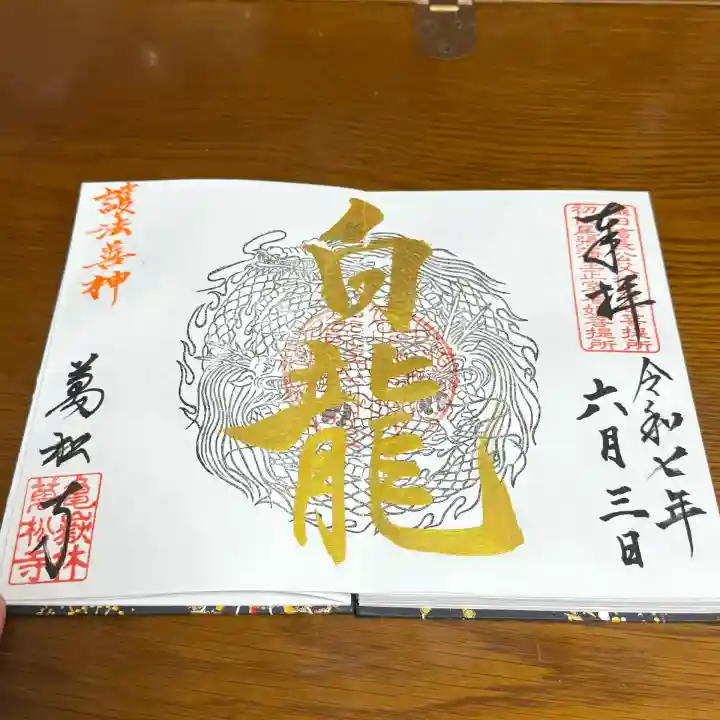 奉拝
令和七年
六月三日
白龍
護法善神
萬松寺
亀嶽林
萬松寺